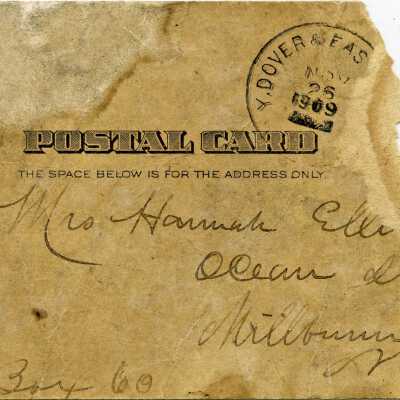 Y. DOVER & EAS
NOV
26
1909
POSTAL CARD
THE SPACE BELOW IS FOR THE ADDRESS ONLY.
Mrs Hannah Elli
Ocean
Millburn
Box 60